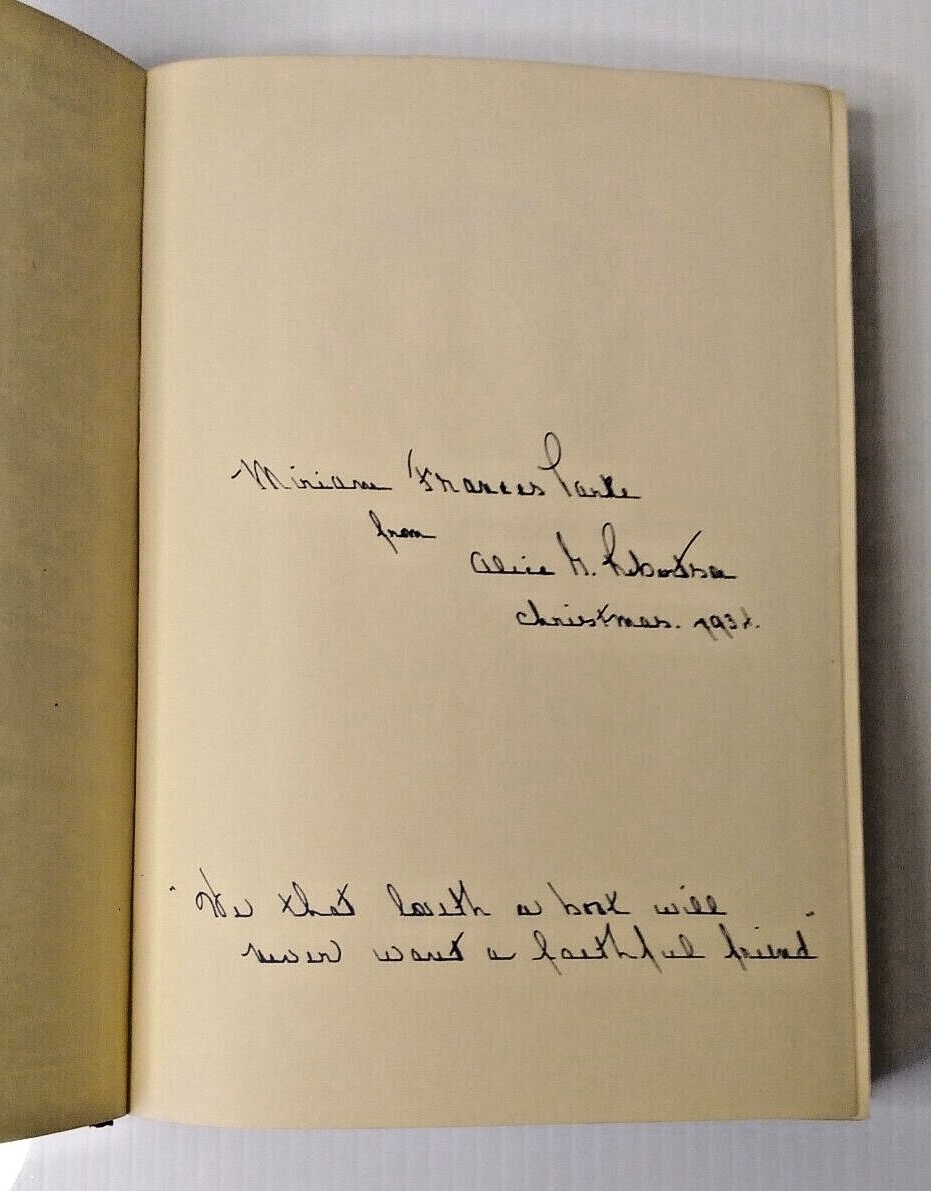 Miriam Frances Parke
from
Alice Robertson
Christmas.
"He that loveth a book will
never want a faithful friend"